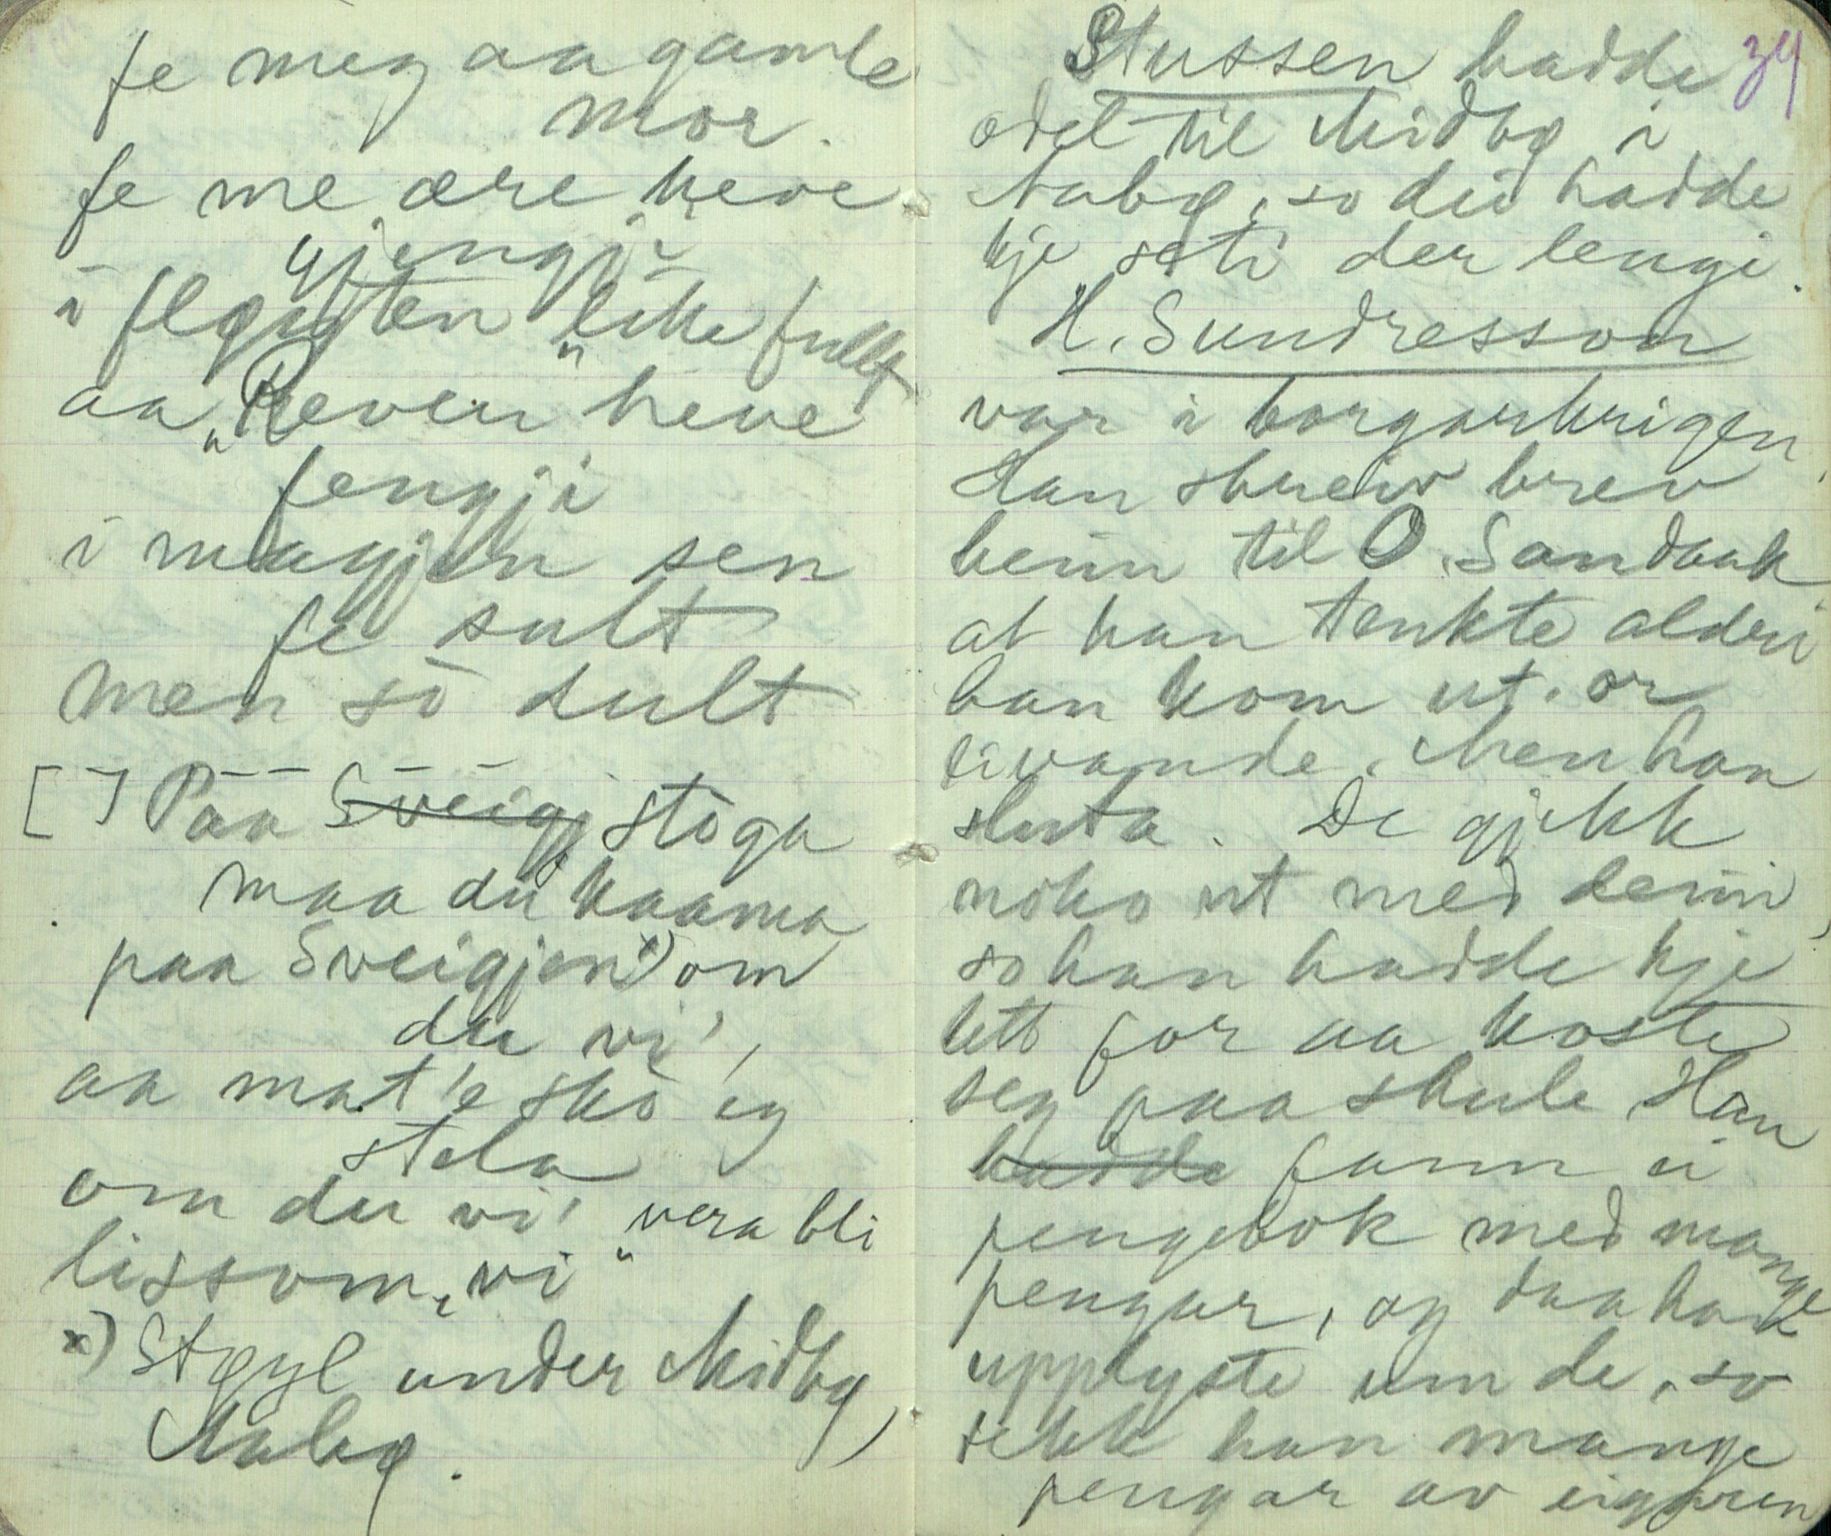 fe meg aa gamle
mor.
fe me ære heve
gjengji
i fløyten "likke fullt
aa "Reven heve
fengji
i magjen sen
fe sult
men so sult
[ ] Paa Sveigj stoga
maa du kaama
paa Sveigjen x) om
du vi',
aa mat'e sko eg
stela
om du vi' vera bli
lissom "vi"
x) Støyl under Midbø,
Aabø.
34
Stussen hadde
odel til Midbø i
Aabø, so dei hadde
kje seti der lengi.
H. Sundresson
var i borgarkrigen.
Han skreiv brev
heim til O. Sandaak,
at han tenkte aldri
han kom ut or
livande. Men han
slutta. De gjekk
noko ut med deim,
so han hadde kje
lett for aa koste
seg paa skule Han
hadde fann ei
pengebok med mange
pengar, og daa han
upplyste um de, so
fekk han mange
pengar av eigaren